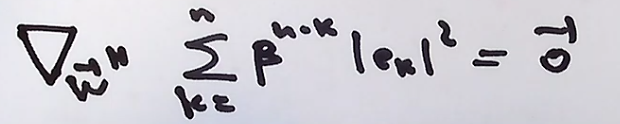 ∇_{\vec{w}^H} \sum_{k=}^{n} β^{n-k} |e_k|^2 = \vec{0}